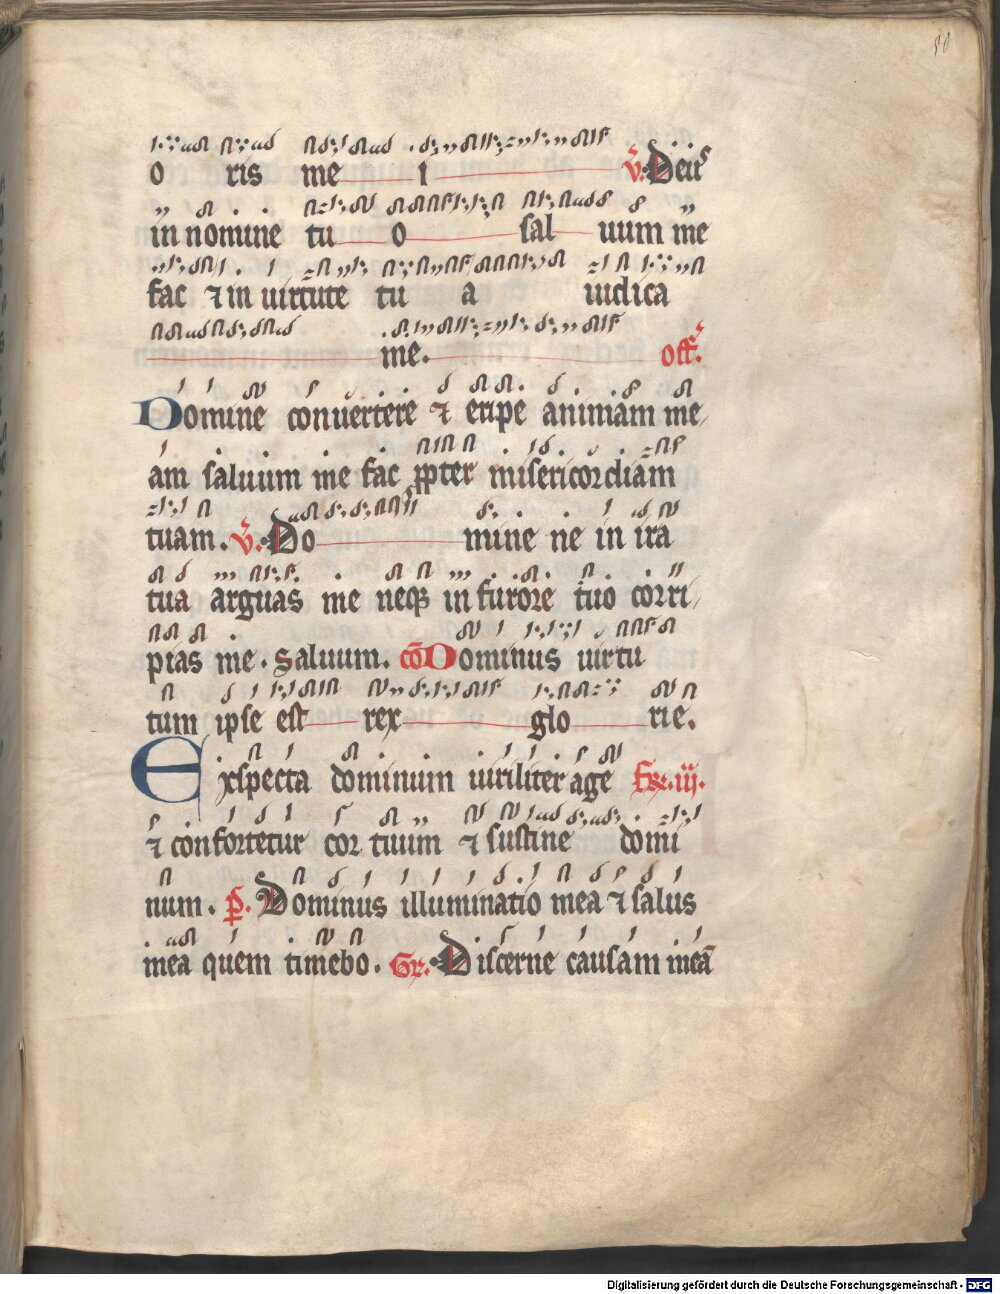 50
oris me i v. Deus
in nomine tu o sal uum me
fac ⁊ in uirtute tu a iudica
me. off.
Domine conuertere ⁊ eripe animam me
am saluum me fac ꝓpter misericordiam
tuam. v. Do mine ne in ira
tua arguas me neqꝫ in furore tuo corri
pias me. Saluum. cō Dominus uirtu
tum ipse est rex glo rie.
Exspecta dominum uiriliter age Fr. iij.
⁊ confortetur cor tuum ⁊ sustine domi
num. p. Dominus illuminatio mea ⁊ salus
mea quem timebo. Gr. Discerne causam meā
Digitalisierung gefördert durch die Deutsche Forschungsgemeinschaft - DFG